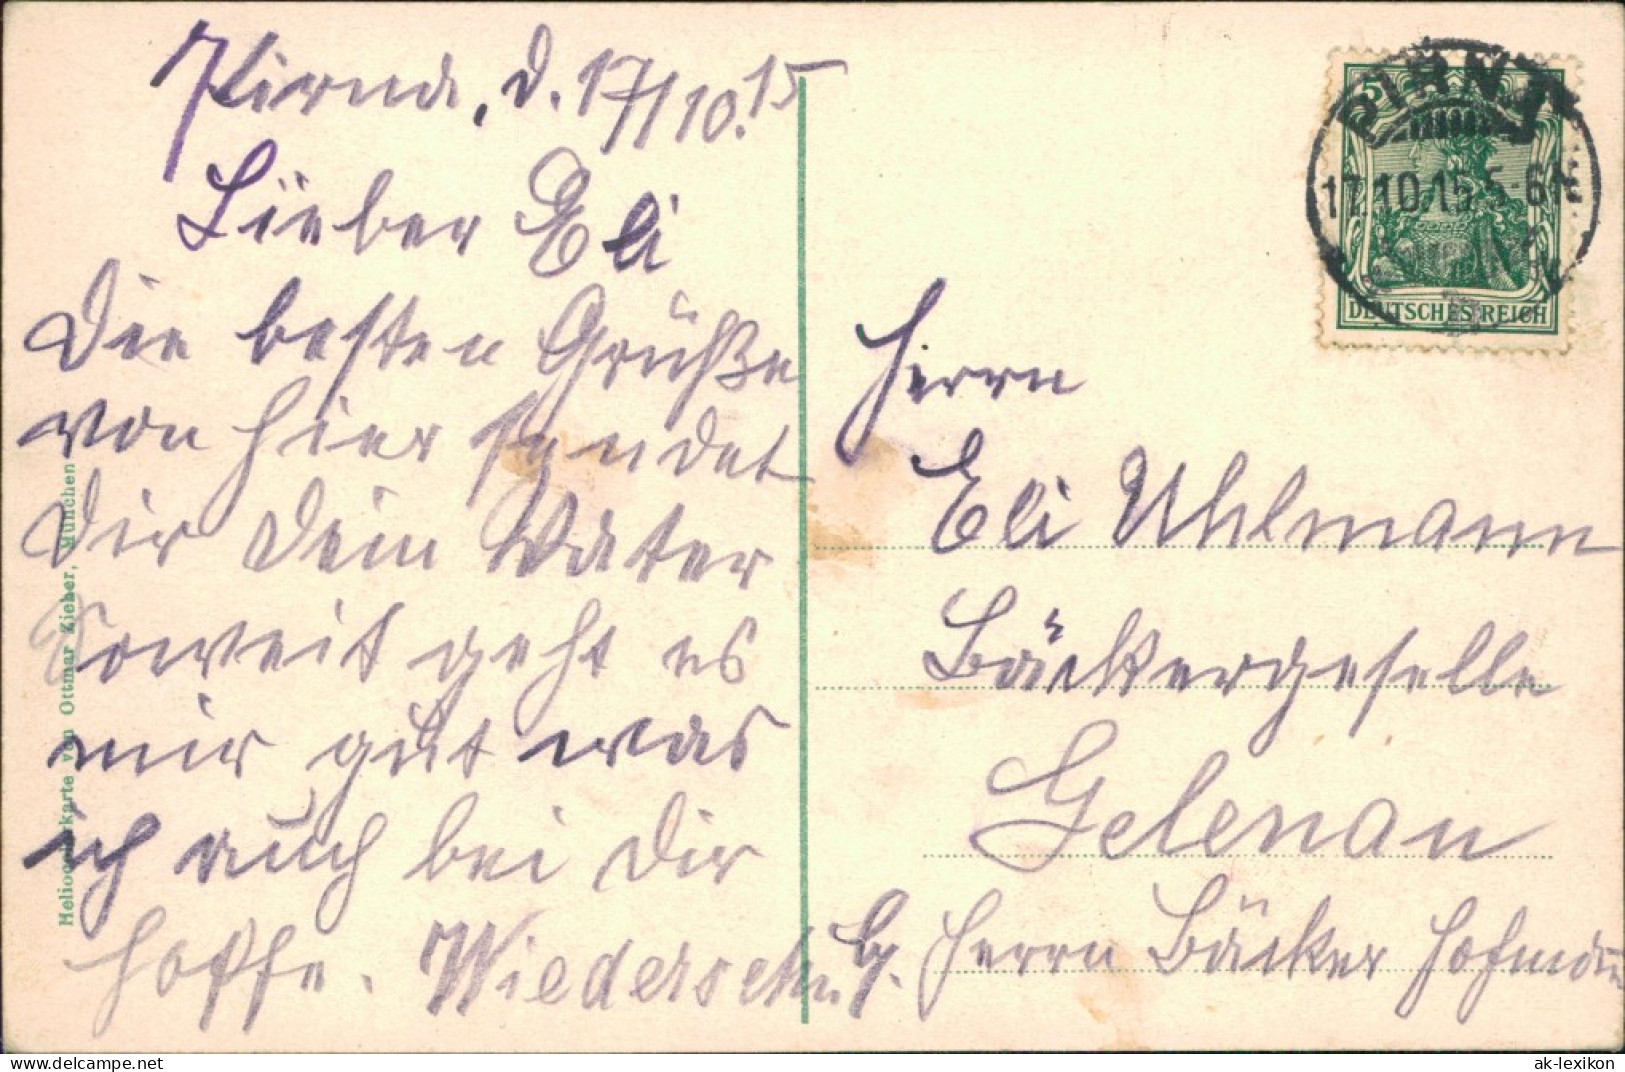 Pirna, d. 17/10.15
Lieber Eli
Die besten Grüße
von hier sendet
Dir Dein Vater
Soweit geht es
mir gut was
ich auch bei Dir
hoffe. Wiedersehn.
Herrn
Eli Uhlmann
Bäckergeselle
Gelenau
b. Herrn Bäcker Hofmann
PIRNA
17.10.15.5-6N
DEUTSCHES REICH
5
Heliocolorkarte von Ottmar Zieher, München
www.delcampe.net
ak-lexikon